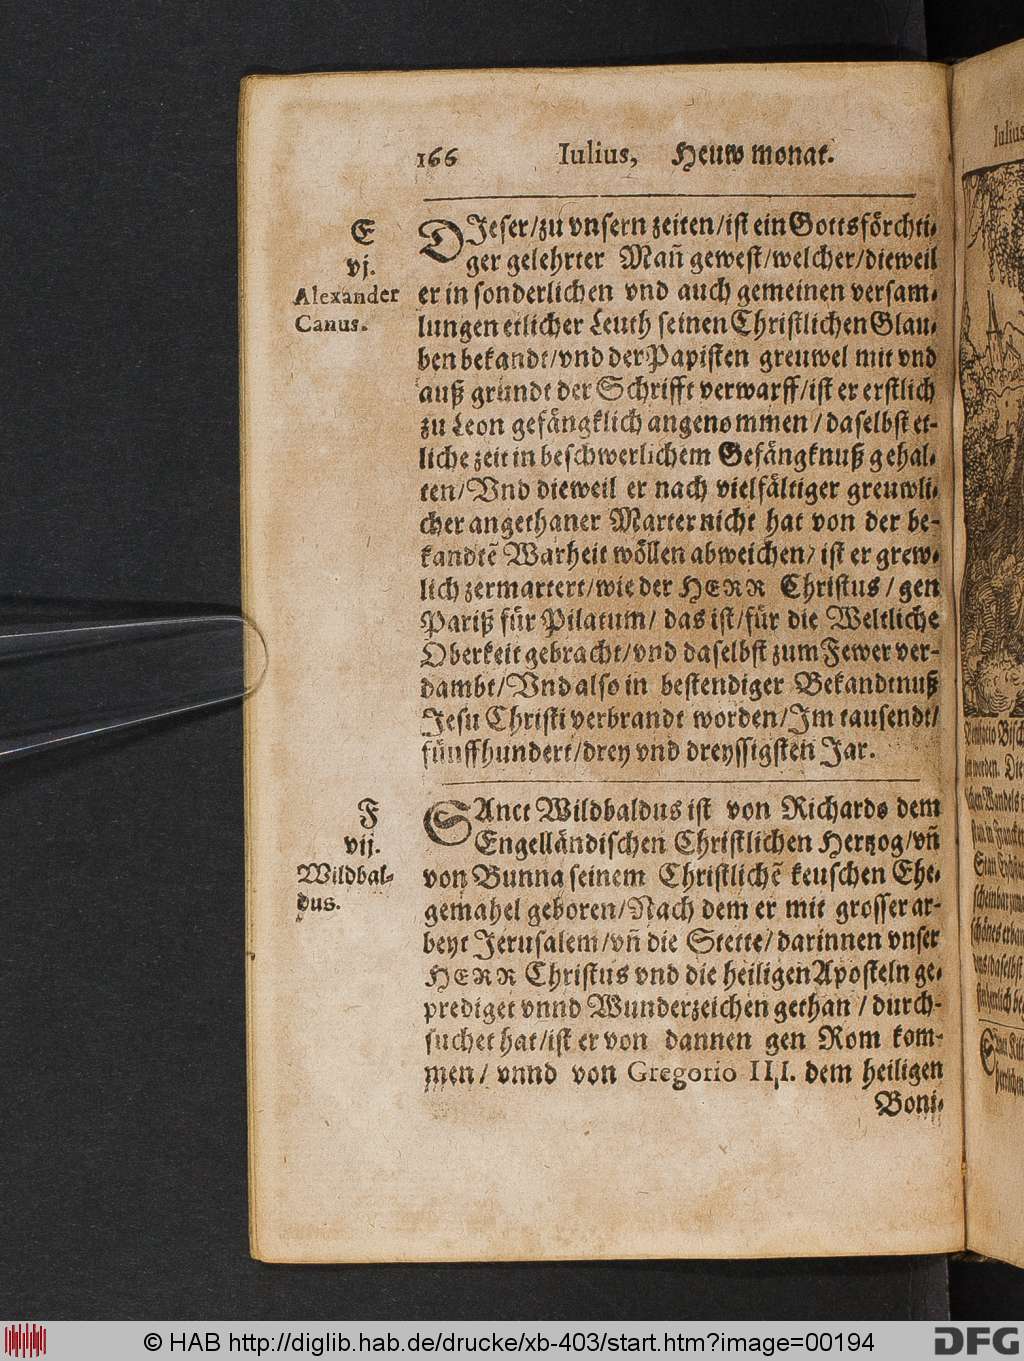 166 Iulius, Heuwmonat.
E
vj.
Alexander
Canus.
DJeser/zu vnsern zeiten/ist ein Gottsförchti-
ger gelehrter Mañ gewest/welcher/dieweil
er in sonderlichen vnd auch gemeinen versam-
lungen etlicher Leuth seinen Christlichen Glau-
ben bekandt/vnd der Papisten greuwel mit vnd
auß grundt der Schrifft verwarff/ist er erstlich
zu Leon gefängklich angenommen/daselbst et-
liche zeit in beschwerlichem Gefängknuß gehal-
ten/Vnd dieweil er nach vielfältiger greuwli-
cher angethaner Marter nicht hat von der be-
kandtẽ Warheit wöllen abweichen/ist er grew-
lich zermartert/wie der HERR Christus/gen
Pariß für Pilatum/das ist/für die Weltliche
Oberkeit gebracht/vnd daselbst zum Fewer ver-
dambt/Vnd also in bestendiger Bekandtnuß
Jesu Christi verbrandt worden/Im tausendt/
fünffhundert/drey vnd dreyssigsten Jar.
F
vij.
Wildbal-
dus.
SAnct Wildbaldus ist von Richardo dem
Engelländischen Christlichen Hertzog/vñ
von Bunna seinem Christlichẽ keuschen Ehe-
gemahel geboren/Nach dem er mit grosser ar-
beyt Jerusalem/vñ die Stette/darinnen vnser
HERR Christus vnd die heiligen Aposteln ge-
prediget vnnd Wunderzeichen gethan/durch-
suchet hat/ist er von dannen gen Rom kom-
men/vnnd von Gregorio III. dem heiligen
Boni-
Iulius
© HAB http://diglib.hab.de/drucke/xb-403/start.htm?image=00194
DFG